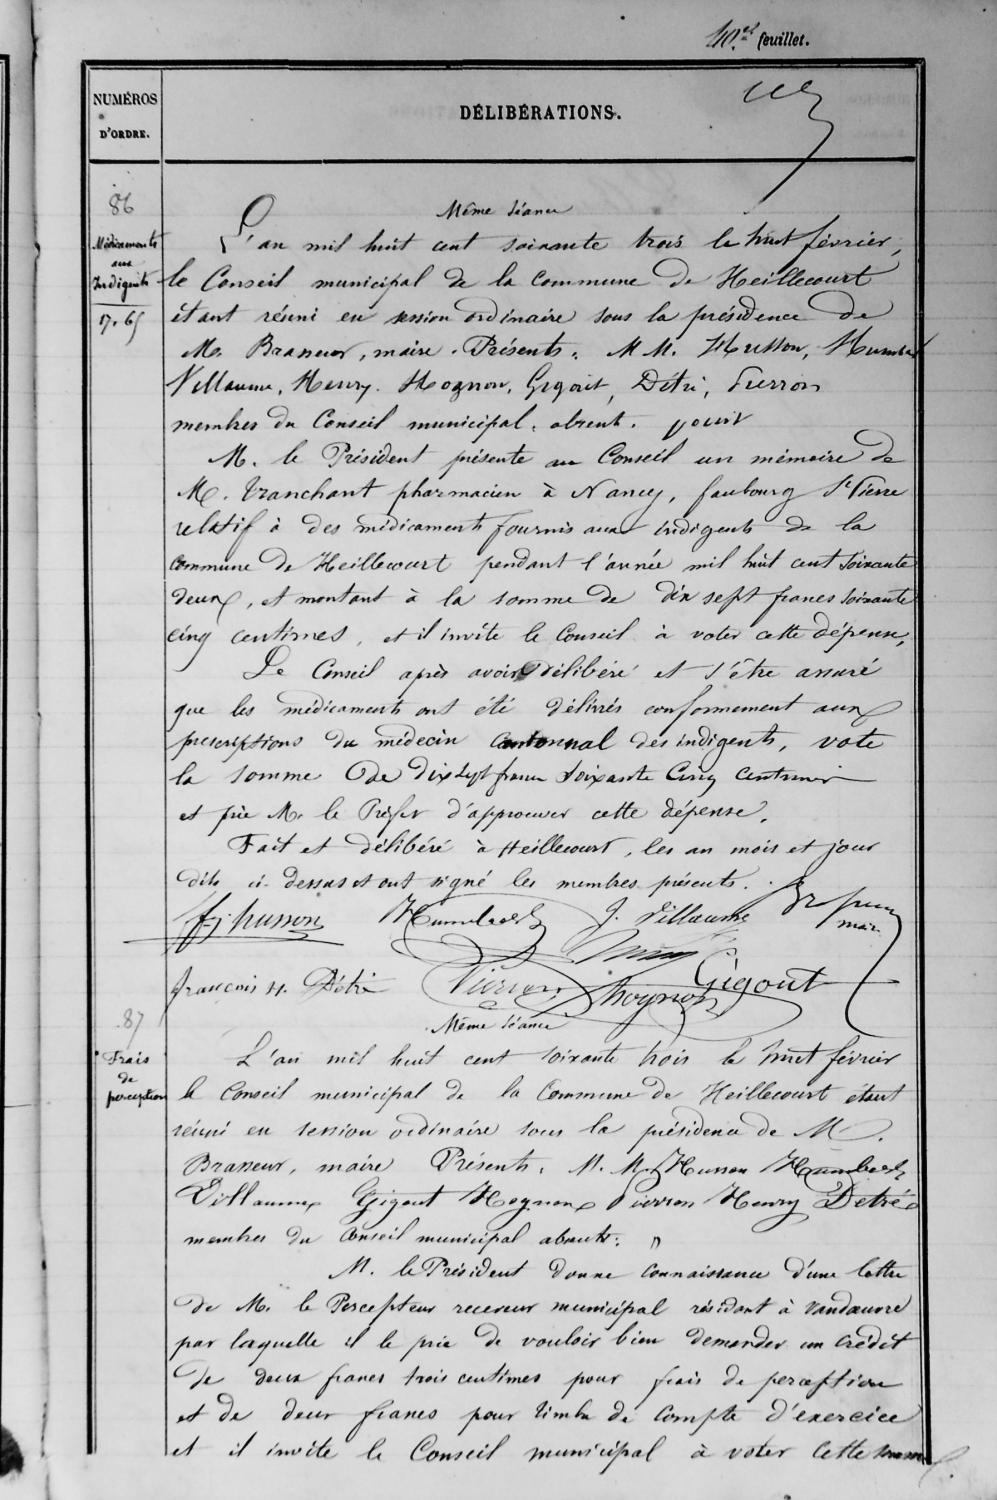 40.et feuillet.
NUMÉROS
D'ORDRE.
DÉLIBÉRATIONS.
86
Médicaments
aux
Indigents
17.65
Même séance
L'an mil huit cent soixante trois le huit février,
le Conseil municipal de la commune de Heillecourt
étant réuni en session ordinaire sous la présidence de
M. Brasseur, maire. Présents. M M. Husson, Humbert
Villaume, Henry. Hognon, Gigout, Détré, Pierron
membres du Conseil municipal. absent.
M. le Président présente au Conseil un mémoire de
M. Tranchant pharmacien à Nancy, faubourg St Pierre
relatif à des médicaments fournis aux indigents de la
commune de Heillecourt pendant l'année mil huit cent soixante
deux, et montant à la somme de dix sept francs soixante
cinq centimes, et il invite le Conseil à voter cette dépense,
Le Conseil après avoir délibéré et s'être assuré
que les médicaments ont été délivrés conformement aux
prescriptions du médecin cantonnal des indigents, vote
la somme de dix sept francs soixante cinq centimes
et prie M. le Préfet d'approuver cette dépense.
Fait et délibéré à Heillecourt, les an mois et jour
dits ci-dessus et ont signé les membres présents.
f. j. husson Humbert J. Villaume maire
françois H. Détré Pierron hognon Gigout
87
Frais
de
perception
Même séance
L'an mil huit cent soixante trois le huit février
le Conseil municipal de la Commune de Heillecourt étant
réuni en session ordinaire sous la présidence de M.
Brasseur, maire Présents. M. M. Husson Humbert
Villaume Gigout Hognon Pierron Henry Détré
membres du Conseil municipal absents. "
M. le Président donne connaissance d'une lettre
de M. le Percepteur receveur municipal résidant à Vandœuvre
par laquelle il le prie de vouloir bien demander un crédit
de deux francs trois centimes pour frais de perception
et de deux francs pour timbre de compte d'exercice
et il invite le Conseil municipal à voter cette somme